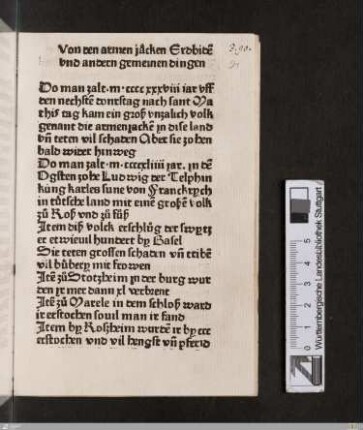 Von den armen jäcken Erdbidē
vnd andern gemeinen dingen
Do man zalt·m·cccc xxxviii iar vff
den nechstē donrstag nach sant Ma
this tag kam ein groß vnzalich volk
genant die armenjackē jn dise land
vñ teten vil schaden Aber sie zohen
bald wider hinweg
Do man zalt·m·ccccxliiii iar· jn dē
Ogsten zohe Ludwig der Telphin
küng karles sune von Franckrych
in tütsche land mit einē großē volk
zů Roß vnd zů füß
Item diß volck erschlůg der swytz
er etwieuil hundert by Basel
Sie teten grossen schaden vñ tribē
vil bůbery mit frowen
Itē zů Stotzheim jn der burg wur
den jr mer dann xl verbrent
Itē zů Marele in dem schloß ward
ir erstochen souil man ir fand
Item by Roßheim wurdē ir by ccc
erstochen vnd vil hengst vñ pferid
Württembergische Landesbibliothek Stuttgart
0 1 2 3 4 5